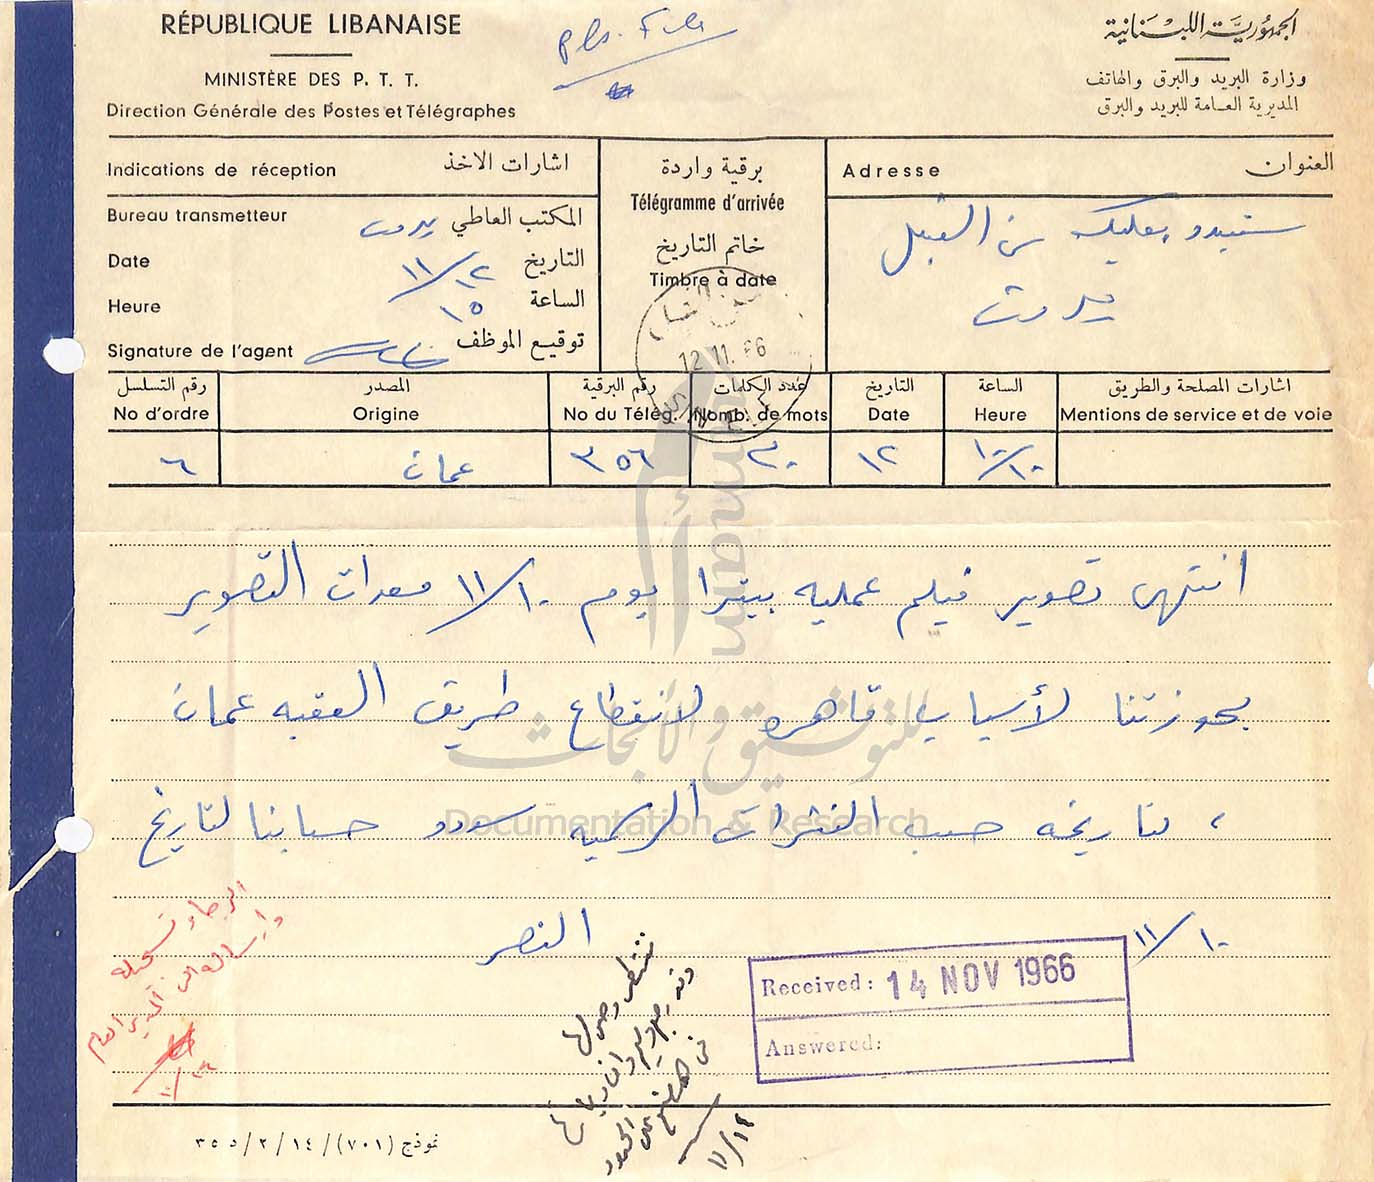 RÉPUBLIQUE LIBANAISE
MINISTÈRE DES P. T. T.
Direction Générale des Postes et Télégraphes
pls. File
الجمهورية اللبنانية
وزارة البريد والبرق والهاتف
المديرية العامة للبريد والبرق
Indications de réception اشارات الاخذ
Bureau transmetteur المكتب العاطي بيروت
Date التاريخ ١٢/١١
Heure الساعة ١٥
Signature de l'agent توقيع الموظف
برقية واردة
Télégramme d'arrivée
خاتم التاريخ
Timbre à date
12 11. 66
Adresse العنوان
ستيديو بعلبك سن الفيل
بيروت
رقم التسلسل المصدر رقم البرقية عدد الكلمات التاريخ الساعة اشارات المصلحة والطريق
No d'ordre Origine No du Télég. Nomb. de mots Date Heure Mentions de service et de voie
٦ عمان ٣٥٦ ٣٠ ١٢ ١٠/١٠
انتهى تصوير فيلم عمليه بيترا يوم ١٠/١١ معدات التصوير
بحوزتنا لأسباب قاهره لانقطاع طريق العقبه عمان
، لتاريخه حسب النشرات الرسميه سددو حسابنا لتاريخ
١٠/١١
النصر
الرجاء تسجيله
وارساله الى المدير العام
ننتظر وصولها
Received: 14 NOV 1966
Answered:
١٤/١١
نموذج (٧٠١)/١٤/٢/د ٣٥
أمم
umam
للتوثيق والأبحاث
Documentation & Research